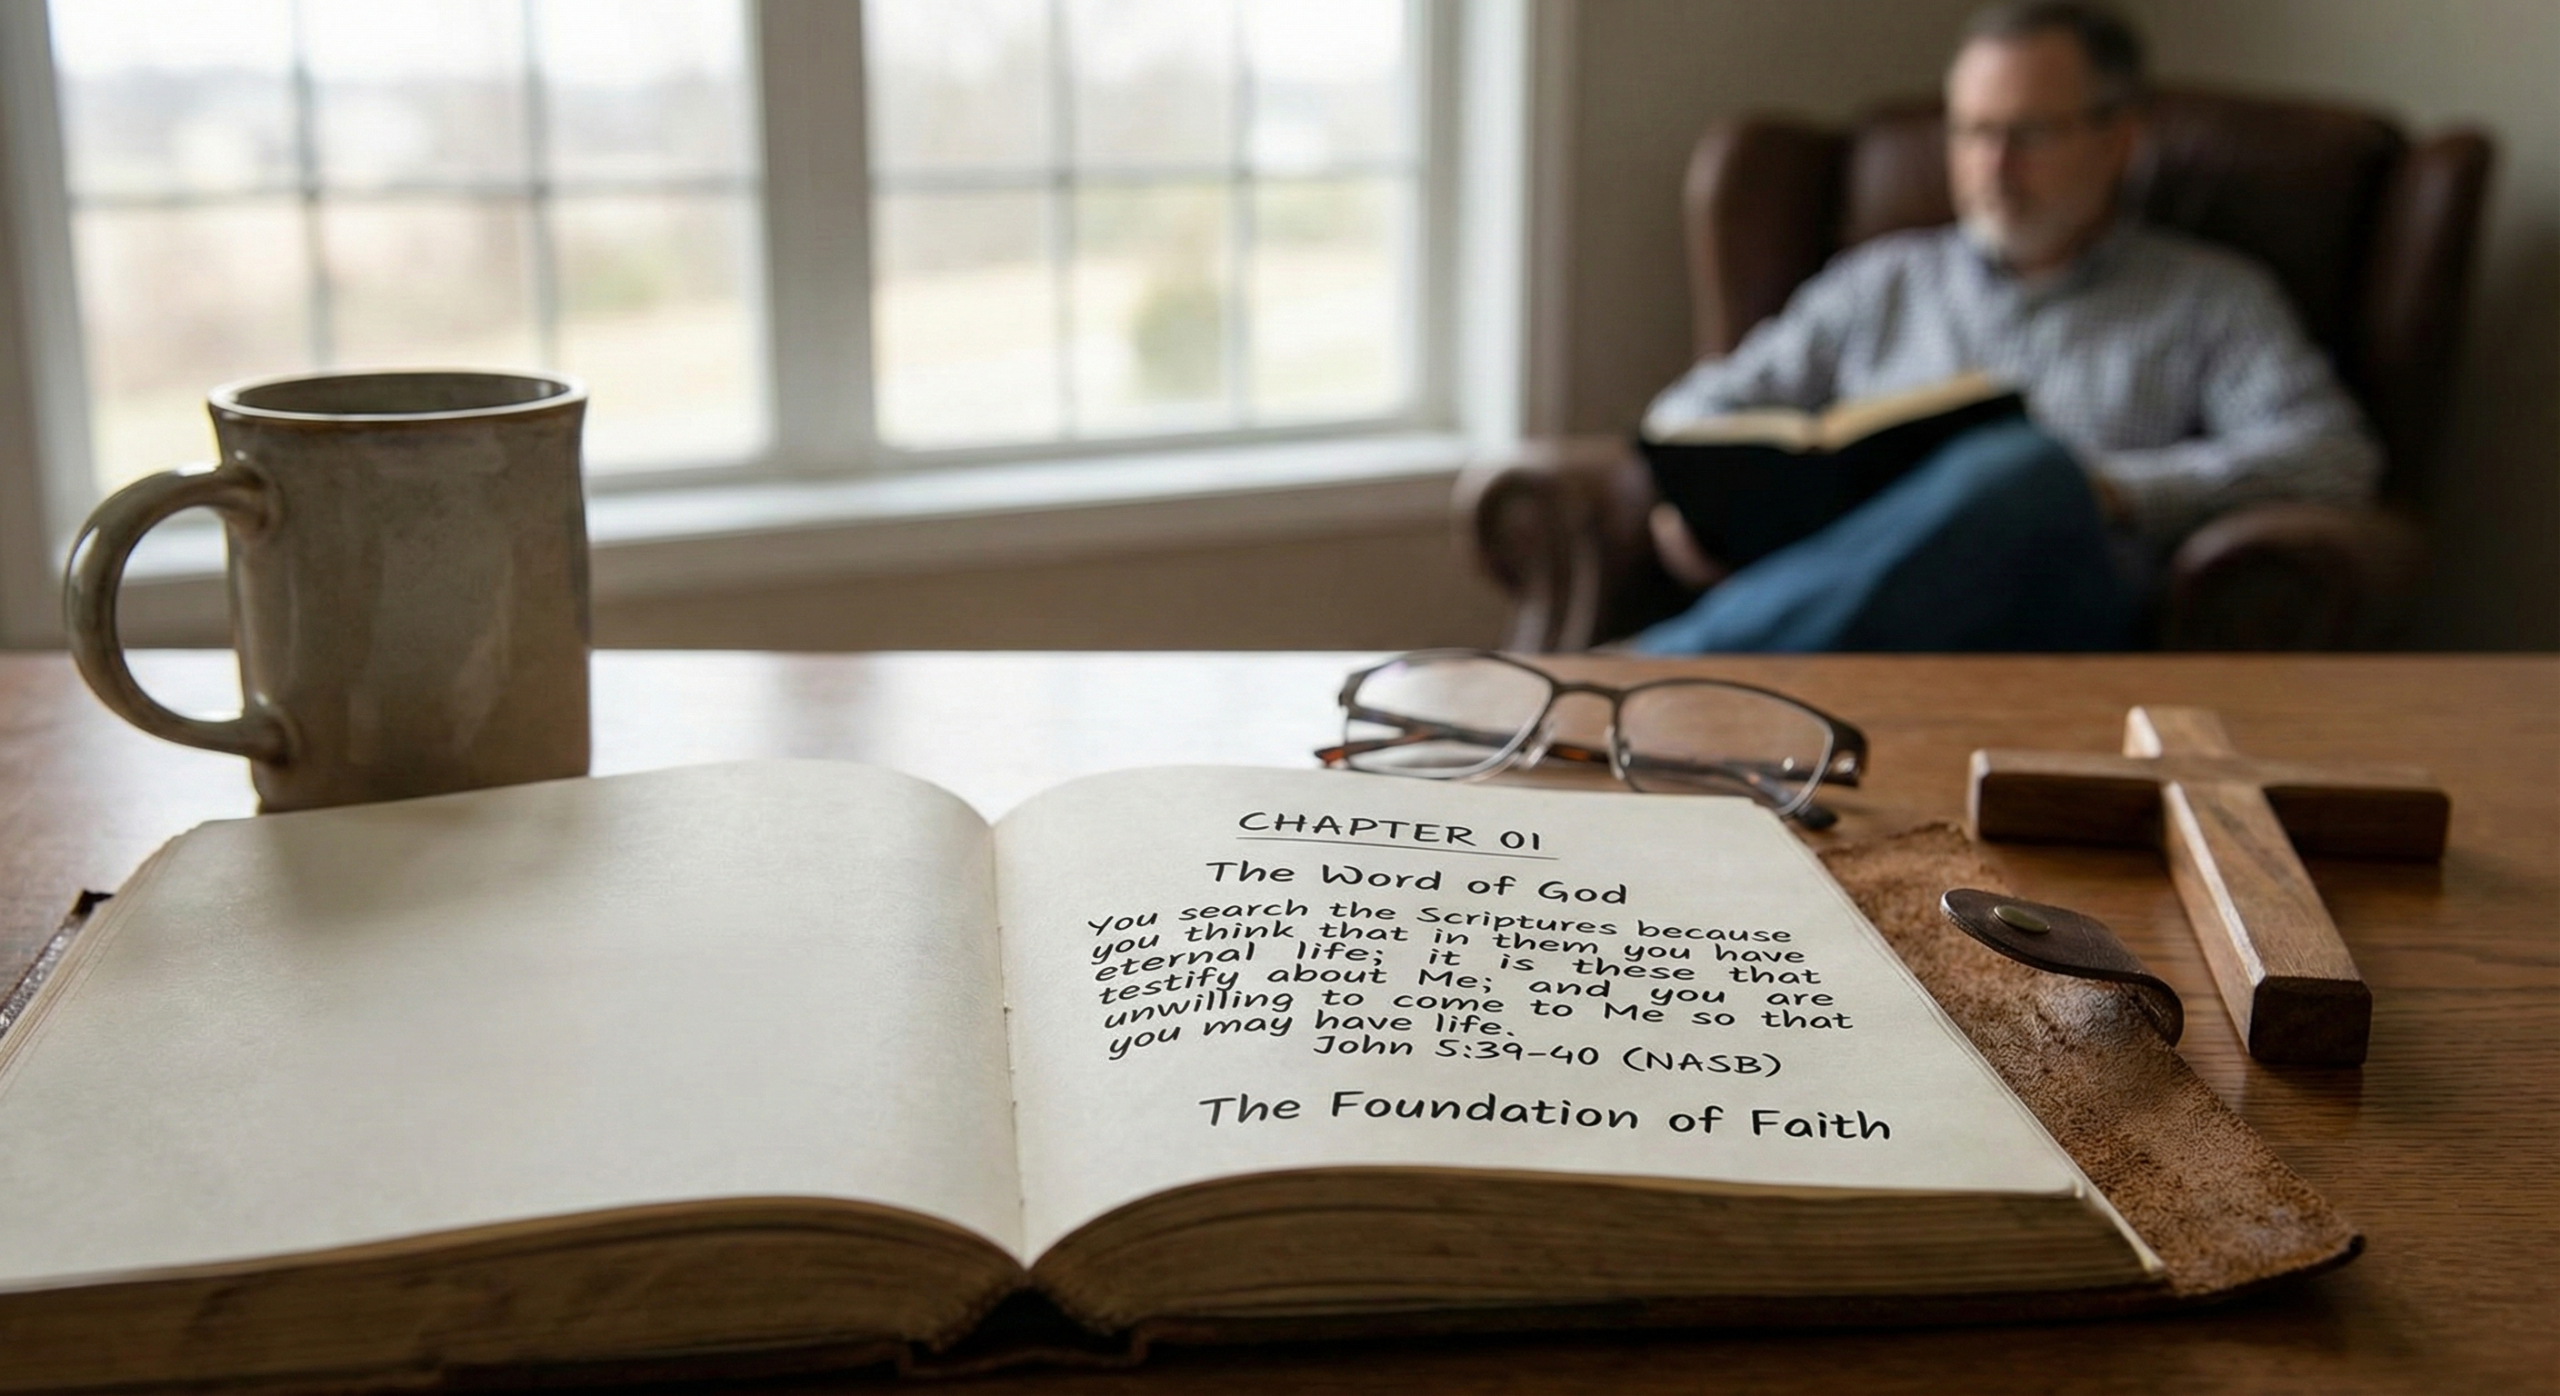 CHAPTER 01
The Word of God
You search the Scriptures because
you think that in them you have
eternal life; it is these that
testify about Me; and you are
unwilling to come to Me so that
you may have life.
John 5:39-40 (NASB)
The Foundation of Faith